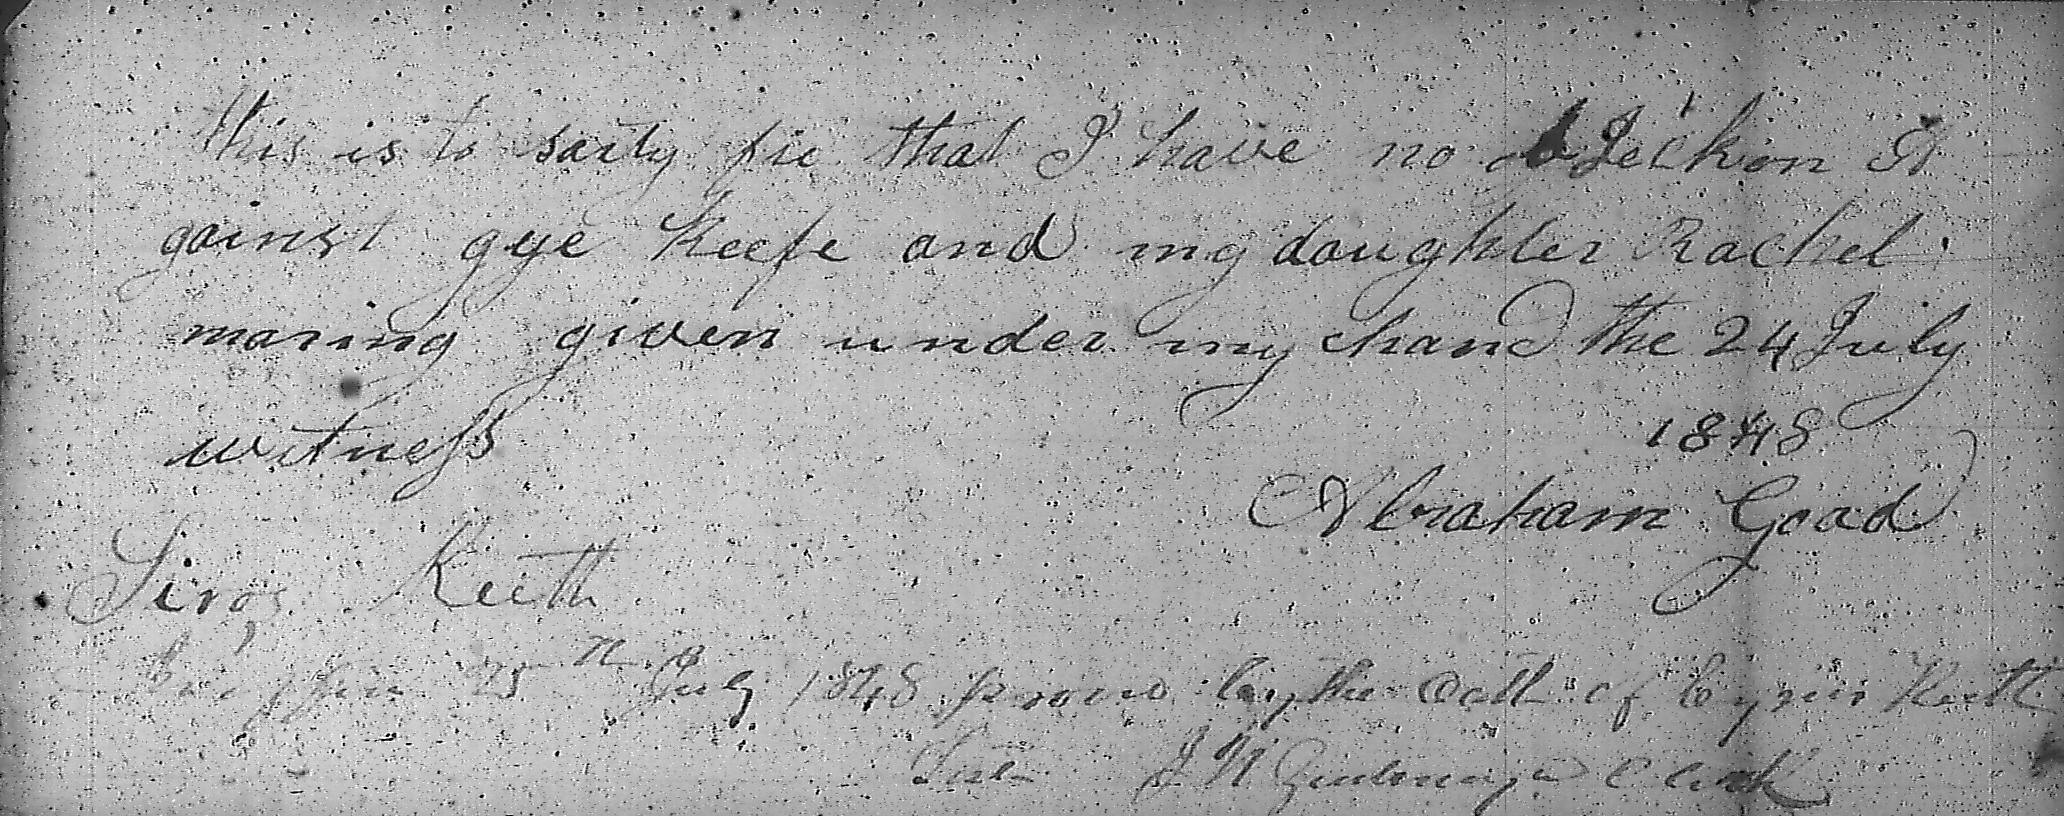 this is to sarty fie that I have no obJeckon A
gainst gye Keefe and my daughter Rachel
maring given under my hand the 24 July
1848
witness
Abraham Goad
Siros Keith
25th July 1848 proved by the oath of Cyrus Keith
Test J W Clerk